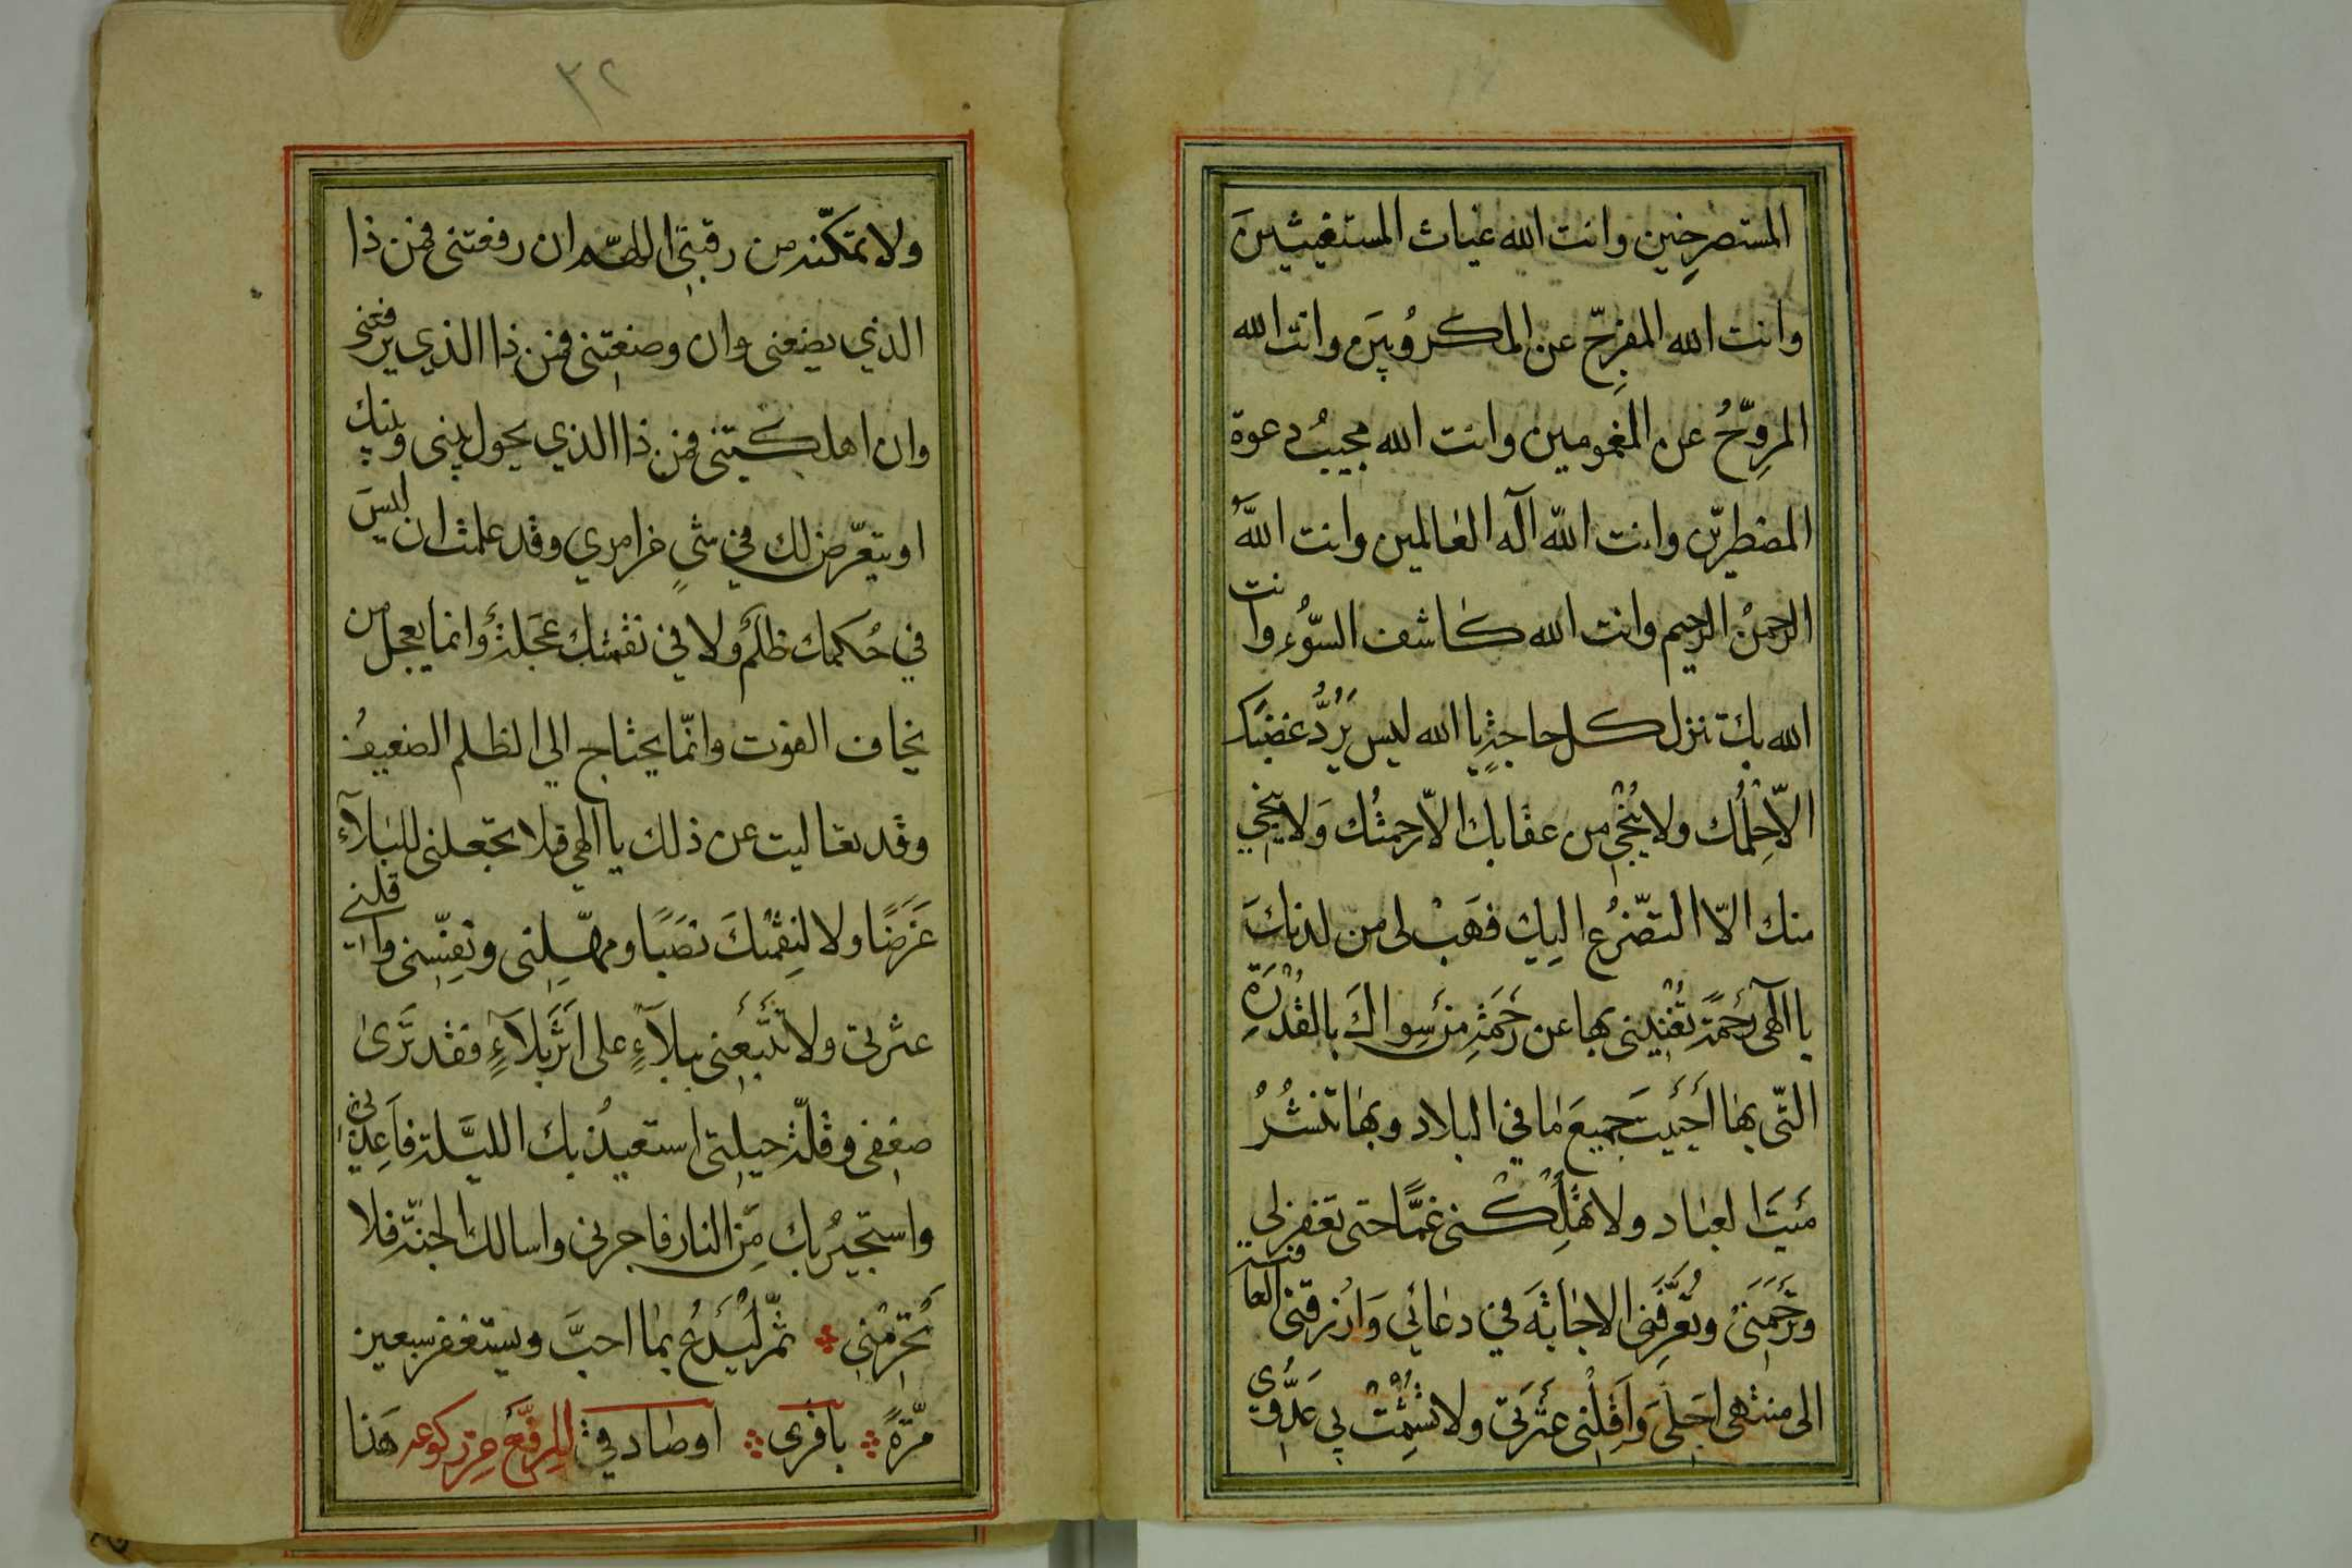 المستصرخين وانت الله غياث المستغيثينَ
وانت الله المفرِّج عن المكروُبينَ وانت الله
المروِّحُ عن المغمومين وانت الله مجيبُ دعوة
المضطرّين وانت اللّه آله العالمين وانت اللّهُ
الرحمنُ الرحيم وانت الله كاشف السّوُء وانت
الله بك تنزل كل حاجةٍ يا الله ليس يَرُدُّ غضبَك
الاّ حِلْمُك ولا يُنْجي من عقابك الاّ رحمتُك وَلا ينجي
منك الاّ التضّرُع اليك فهَبْ لى من لدنكَ
يا آلهى رحمةً تُغْنيني بها عن رَحمَةِ مَنْ سِواكَ بالقُدْرَةِ
التّى بها اَحيَيتَ جميعَ ما في البلاد وبها تَنْشُرُ
مَيتَ العباد ولا تُهْلِكْنى غمًّا حتى تغفر لي
وَتَرْحَمَنى وَتُعرِّفَنى الاجابَةَ في دعائي وَارْزقنى العافية
الى منتهى اجَلى وَاَقِلْنى عَثرَتى ولا تُشْمِتْ بي عَدُوّي
٣٢
ولا تمكّنه من رقبتى اللهمّ ان رفعتنى فمن ذا
الذي يضعنى وان وضعتنى فمن ذا الذي يرفعنى
وان اهلكتنى فمن ذا الذي يحول بينى وبينك
او يتعرّض لك في شيٍ من امري وقد علمت ان ليسَ
في حُكمك ظلم ولا في نقمتك عَجَلةٌ وانما يعجل من
يخاف الفوت وانّما يحتاج الي الظلم الضعيفُ
وقد تعاليت عن ذلك يا الهى فلا تجعلنى للبلآء
غَرَضًا ولا لنِقمتكَ نصَبًا ومهّلنى ونفِّسنى واقلنى
عثرتى ولا تتبعنى ببلآءٍ على اَثَرِ بَلآءٍ فقد تَرىٰ
ضعفى وقلّة حيلتى استعيذُ بك الليَلة فاَعِذنى
واستجيرُ بك مِن النار فاجرنى واسالك الجنّة فلا
تَحْرِمْنى ثمّ ليَدعُ بما احبَّ ويستغفر سبعين
مرّةً باقرى اوصادقيت الرفع من ركوعه هَذا